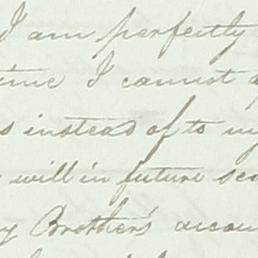 I am perfectly
time I cannot
s instead of to my
will in future
Brother's accou